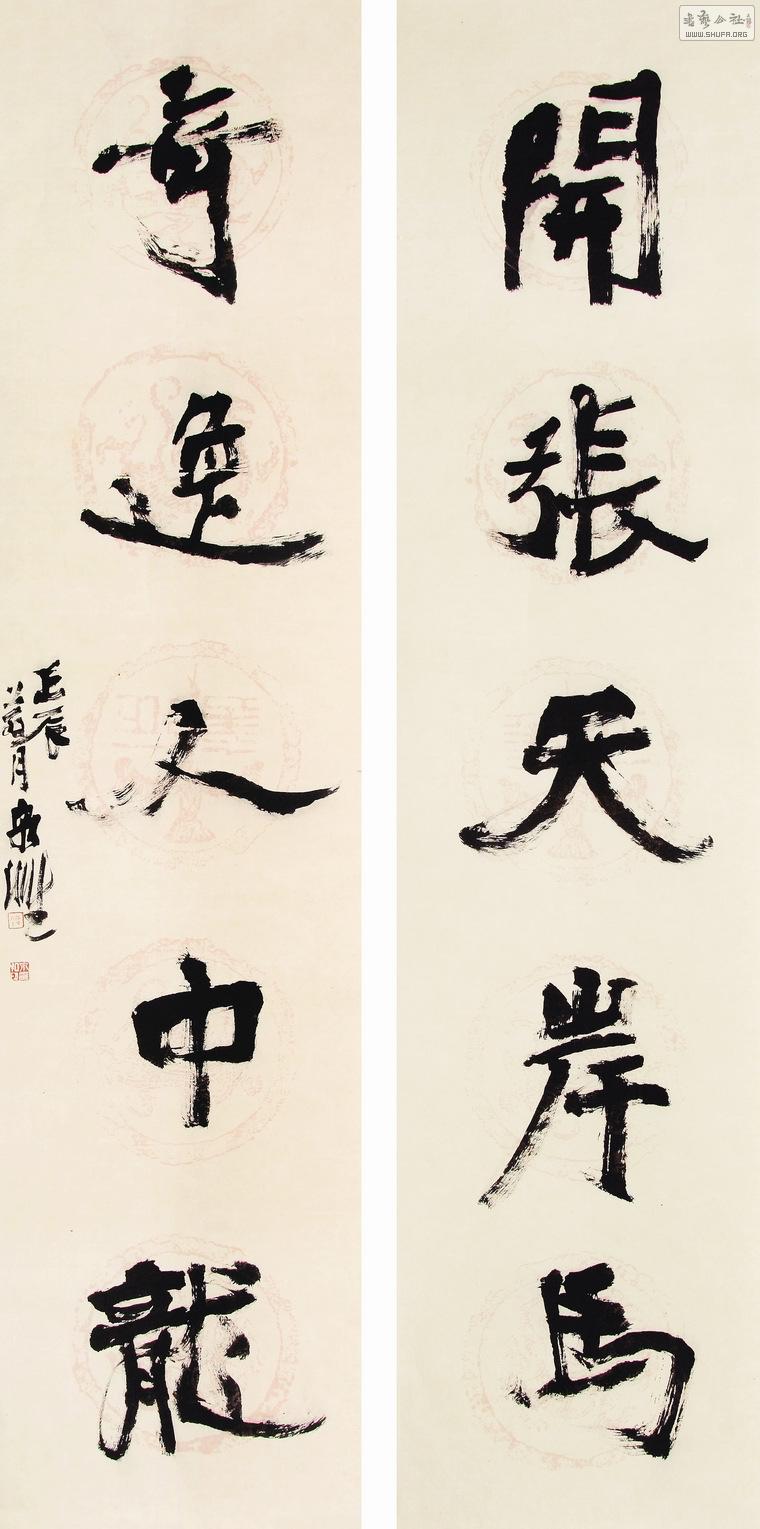 開張天岸馬
奇逸人中龍
壬辰
月
書法公社
WWW.SHUFA.ORG